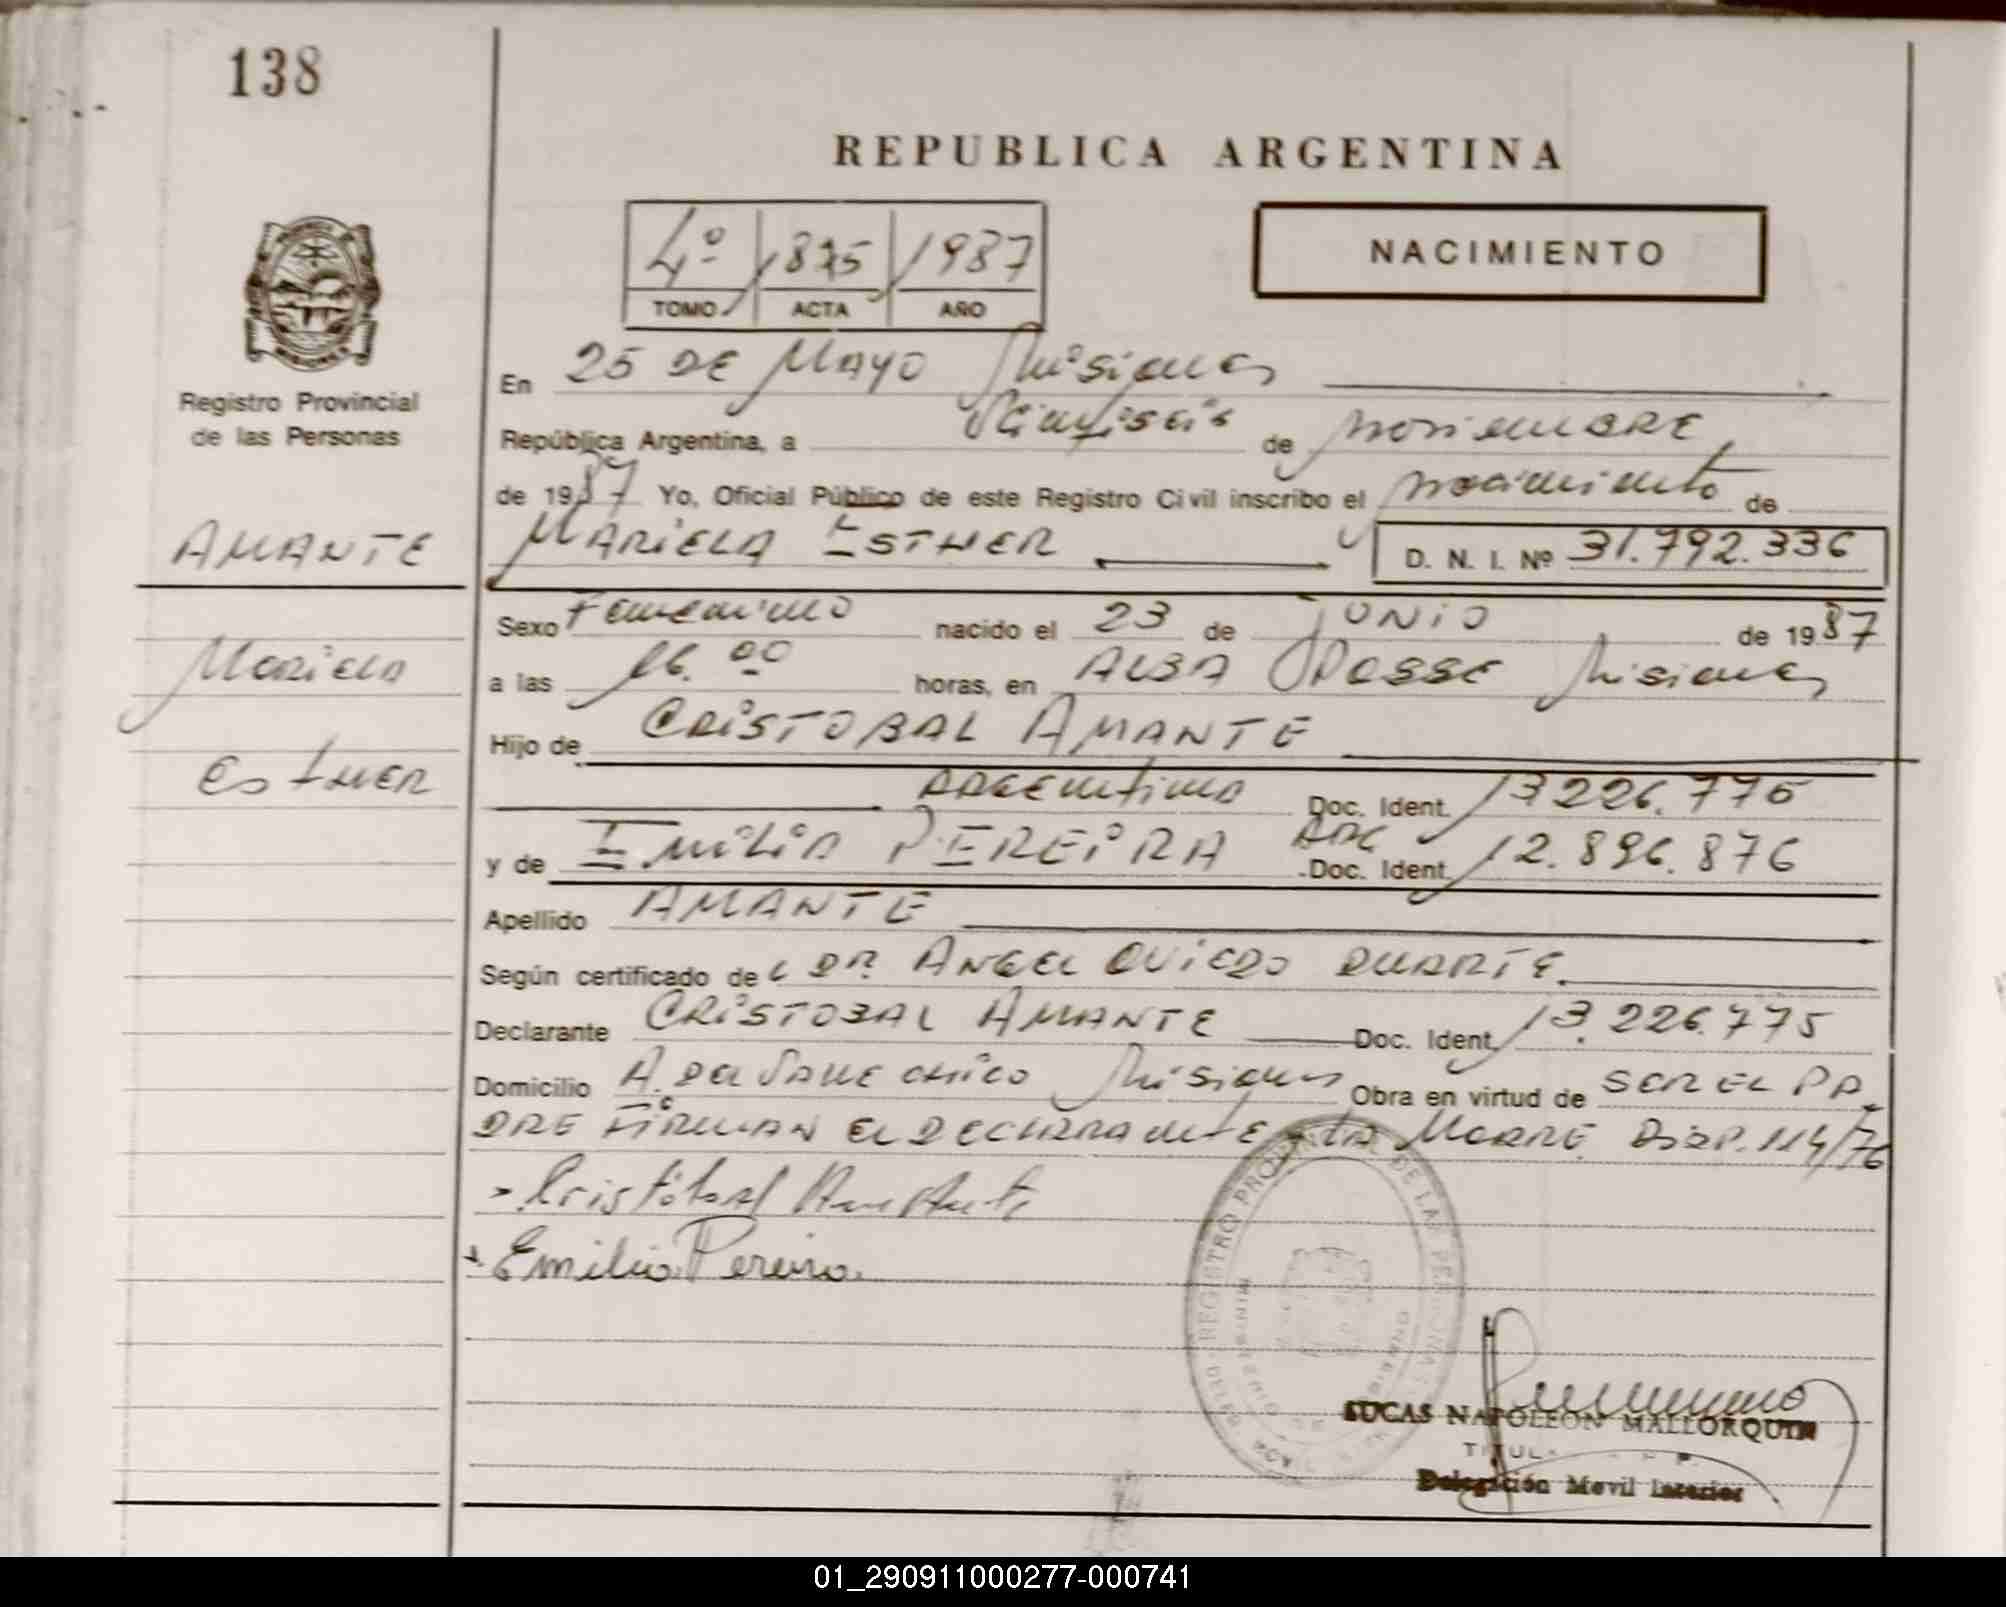 138
REPUBLICA ARGENTINA
NACIMIENTO
4º 875 1987
TOMO ACTA AÑO
Registro Provincial
de las Personas
AMANTE
Mariela
Esther
En 25 DE MAYO Misiones
República Argentina, a Dieciseis de noviembre
de 1987 Yo, Oficial Público de este Registro Civil inscribo el nacimiento de
MARIELA ESTHER D. N. I. Nº 31.792.336
Sexo Femenino nacido el 23 de JUNIO de 1987
a las 16.00 horas, en ALBA POSSE Misiones
Hijo de CRISTOBAL AMANTE
ARGENtino Doc. Ident. 13226.775
y de EMILIA PEREIRA ARG Doc. Ident. 12.896.876
Apellido AMANTE
Según certificado de DR. ANGEL OVIEDO DUARTE
Declarante CRISTOBAL AMANTE Doc. Ident. 13.226.775
Domicilio A. DEL SAUCE CHICO Misiones Obra en virtud de SER EL PA
DRE FIRMAN EL DECLARANTE LA MADRE DISP. 114/76
Cristobal Amante
Emilia Pereira
REGISTRO PROVINCIAL DE LAS PERSONAS
LUCAS NAPOLEON MALLORQUIN
TITULAR
Delegación Movil Interior
01_290911000277-000741